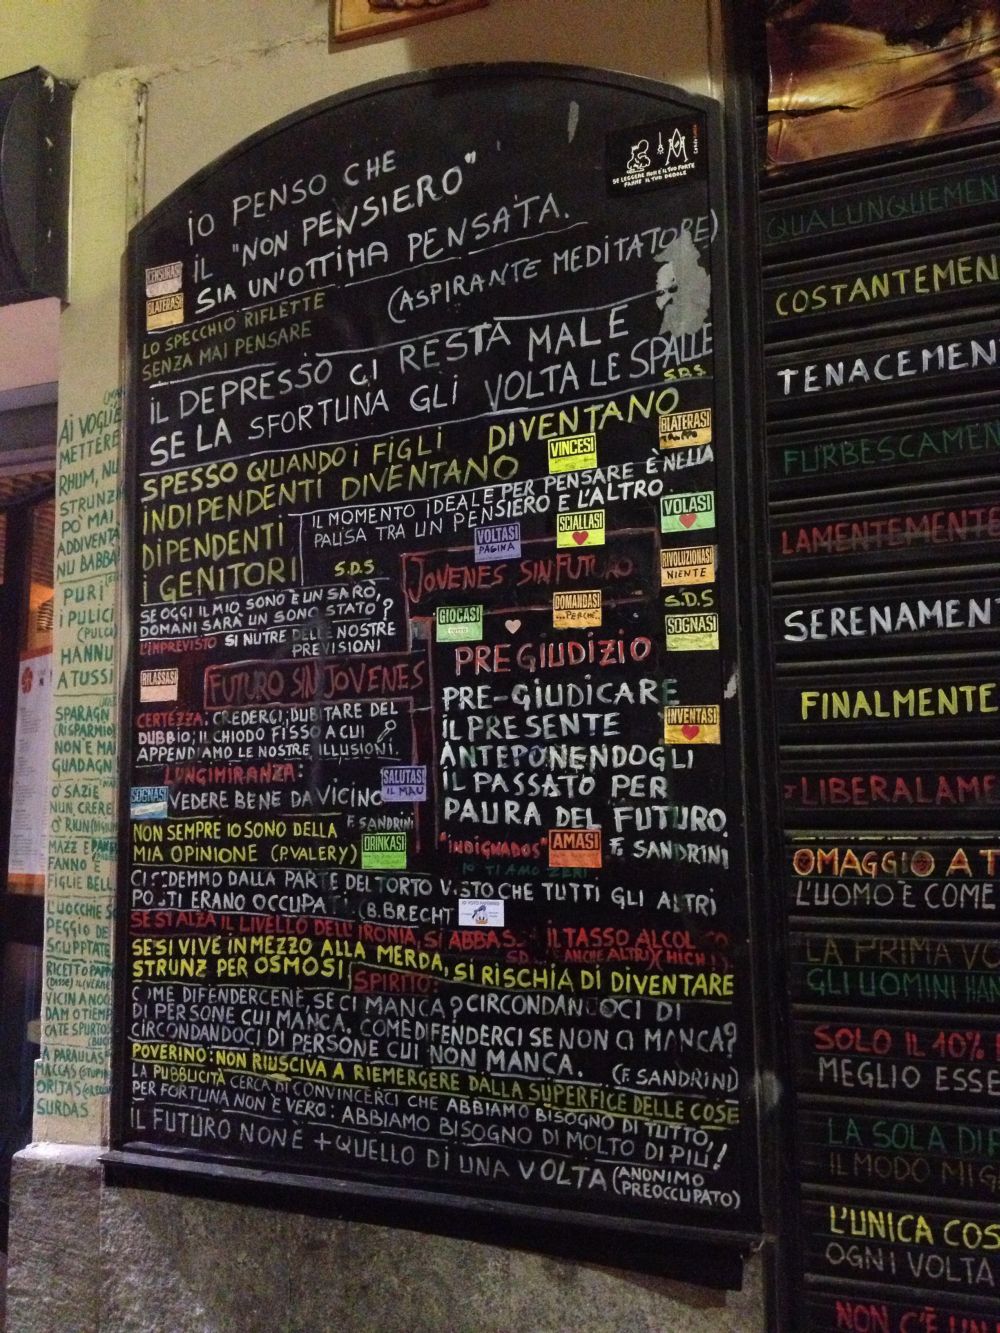 IO PENSO CHE
IL "NON PENSIERO"
SIA UN'OTTIMA PENSATA.
(ASPIRANTE MEDITATORE)
SE LEGGERE NON È IL TUO FORTE
FANNE IL TUO DEBOLE
CENSURASI
BLATERASI
LO SPECCHIO RIFLETTE
SENZA MAI PENSARE
IL DEPRESSO CI RESTA MALE
SE LA SFORTUNA GLI VOLTA LE SPALLE
S.D.S
SPESSO QUANDO I FIGLI DIVENTANO
INDIPENDENTI DIVENTANO
DIPENDENTI
I GENITORI
S.D.S
VINCESI
BLATERASI
IL MOMENTO IDEALE PER PENSARE È NELLA
PAUSA TRA UN PENSIERO E L'ALTRO.
VOLTASI
PAGINA
SCIALLASI
VOLASI
JOVENES SIN FUTURO
RIVOLUZIONASI
NIENTE
S.D.S
SE OGGI IL MIO SONO È UN SARÒ,
DOMANI SARÀ UN SONO STATO?
L'IMPREVISTO SI NUTRE DELLE NOSTRE
PREVISIONI
GIOCASI
TUTTO
DOMANDASI
...PERCHÉ..
SOGNASI
RILASSASI
FUTURO SIN JOVENES
PREGIUDIZIO
PRE-GIUDICARE
IL PRESENTE
ANTEPONENDOGLI
IL PASSATO PER
PAURA DEL FUTURO.
F. SANDRINI
INVENTASI
CERTEZZA: CREDERCI; DUBITARE DEL
DUBBIO; IL CHIODO FISSO A CUI
APPENDIAMO LE NOSTRE ILLUSIONI.
LUNGIMIRANZA:
VEDERE BENE DA VICINO
F. SANDRINI
SOGNASI
SALUTASI
IL MAU
NON SEMPRE IO SONO DELLA
MIA OPINIONE (P. VALERY)
DRINKASI
"INDIGNADOS"
AMASI
IO TI AMO ZERI
CI SEDEMMO DALLA PARTE DEL TORTO VISTO CHE TUTTI GLI ALTRI
POSTI ERANO OCCUPATI (B. BRECHT
SE SI ALZA IL LIVELLO DELL'IRONIA, SI ABBASSA IL TASSO ALCOLICO
(ANCHE ALTRI)
SE SI VIVE IN MEZZO ALLA MERDA, SI RISCHIA DI DIVENTARE
STRUNZ PER OSMOSI
SPIRITO:
COME DIFENDERCENE, SE CI MANCA? CIRCONDANDOCI DI
DI PERSONE CUI MANCA. COME DIFENDERCI SE NON CI MANCA?
CIRCONDANDOCI DI PERSONE CUI NON MANCA. (F. SANDRINI)
POVERINO: NON RIUSCIVA A RIEMERGERE DALLA SUPERFICE DELLE COSE
LA PUBBLICITÀ CERCA DI CONVINCERCI CHE ABBIAMO BISOGNO DI TUTTO,
PER FORTUNA NON È VERO: ABBIAMO BISOGNO DI MOLTO DI PIÙ!
IL FUTURO NON È + QUELLO DI UNA VOLTA (ANONIMO
PREOCCUPATO)
AI VOGLIE
METTERE
RHUM, NU
STRUNZ
PO' MAI
ADDIVENTÀ
NU BABBÀ
PURI
I PULICI
(PULCI)
HANNU
A TUSSI
SPARAGN
(RISPARMIO)
NON È MAI
GUADAGN
O' SAZIE
NUN CRERE
O' RIUN
MAZZ E PANE
FANNO
FIGLIE BELL
L'UOCCHIE SO
PEGGIO DE
SCUPPTATE
RICETTO PAPP
(DISSE)
VICIN A NOCE
DAM O TIEMP
CA TE SPURTOS
A PARAULAS
MACCAS (STUPIDE)
ORITJAS
SURDAS
QUALUNQUEMEN
COSTANTEMEN
TENACEMEN
FURBESCAMEN
LAMENTEMENTE
SERENAMEN
FINALMENTE
LIBERALAME
OMAGGIO A T
L'UOMO È COME
LA PRIMA VO
GLI UOMINI HAN
SOLO IL 10%
MEGLIO ESSE
LA SOLA DIF
IL MODO MIG
L'UNICA COS
OGNI VOLTA
NON C'È UN